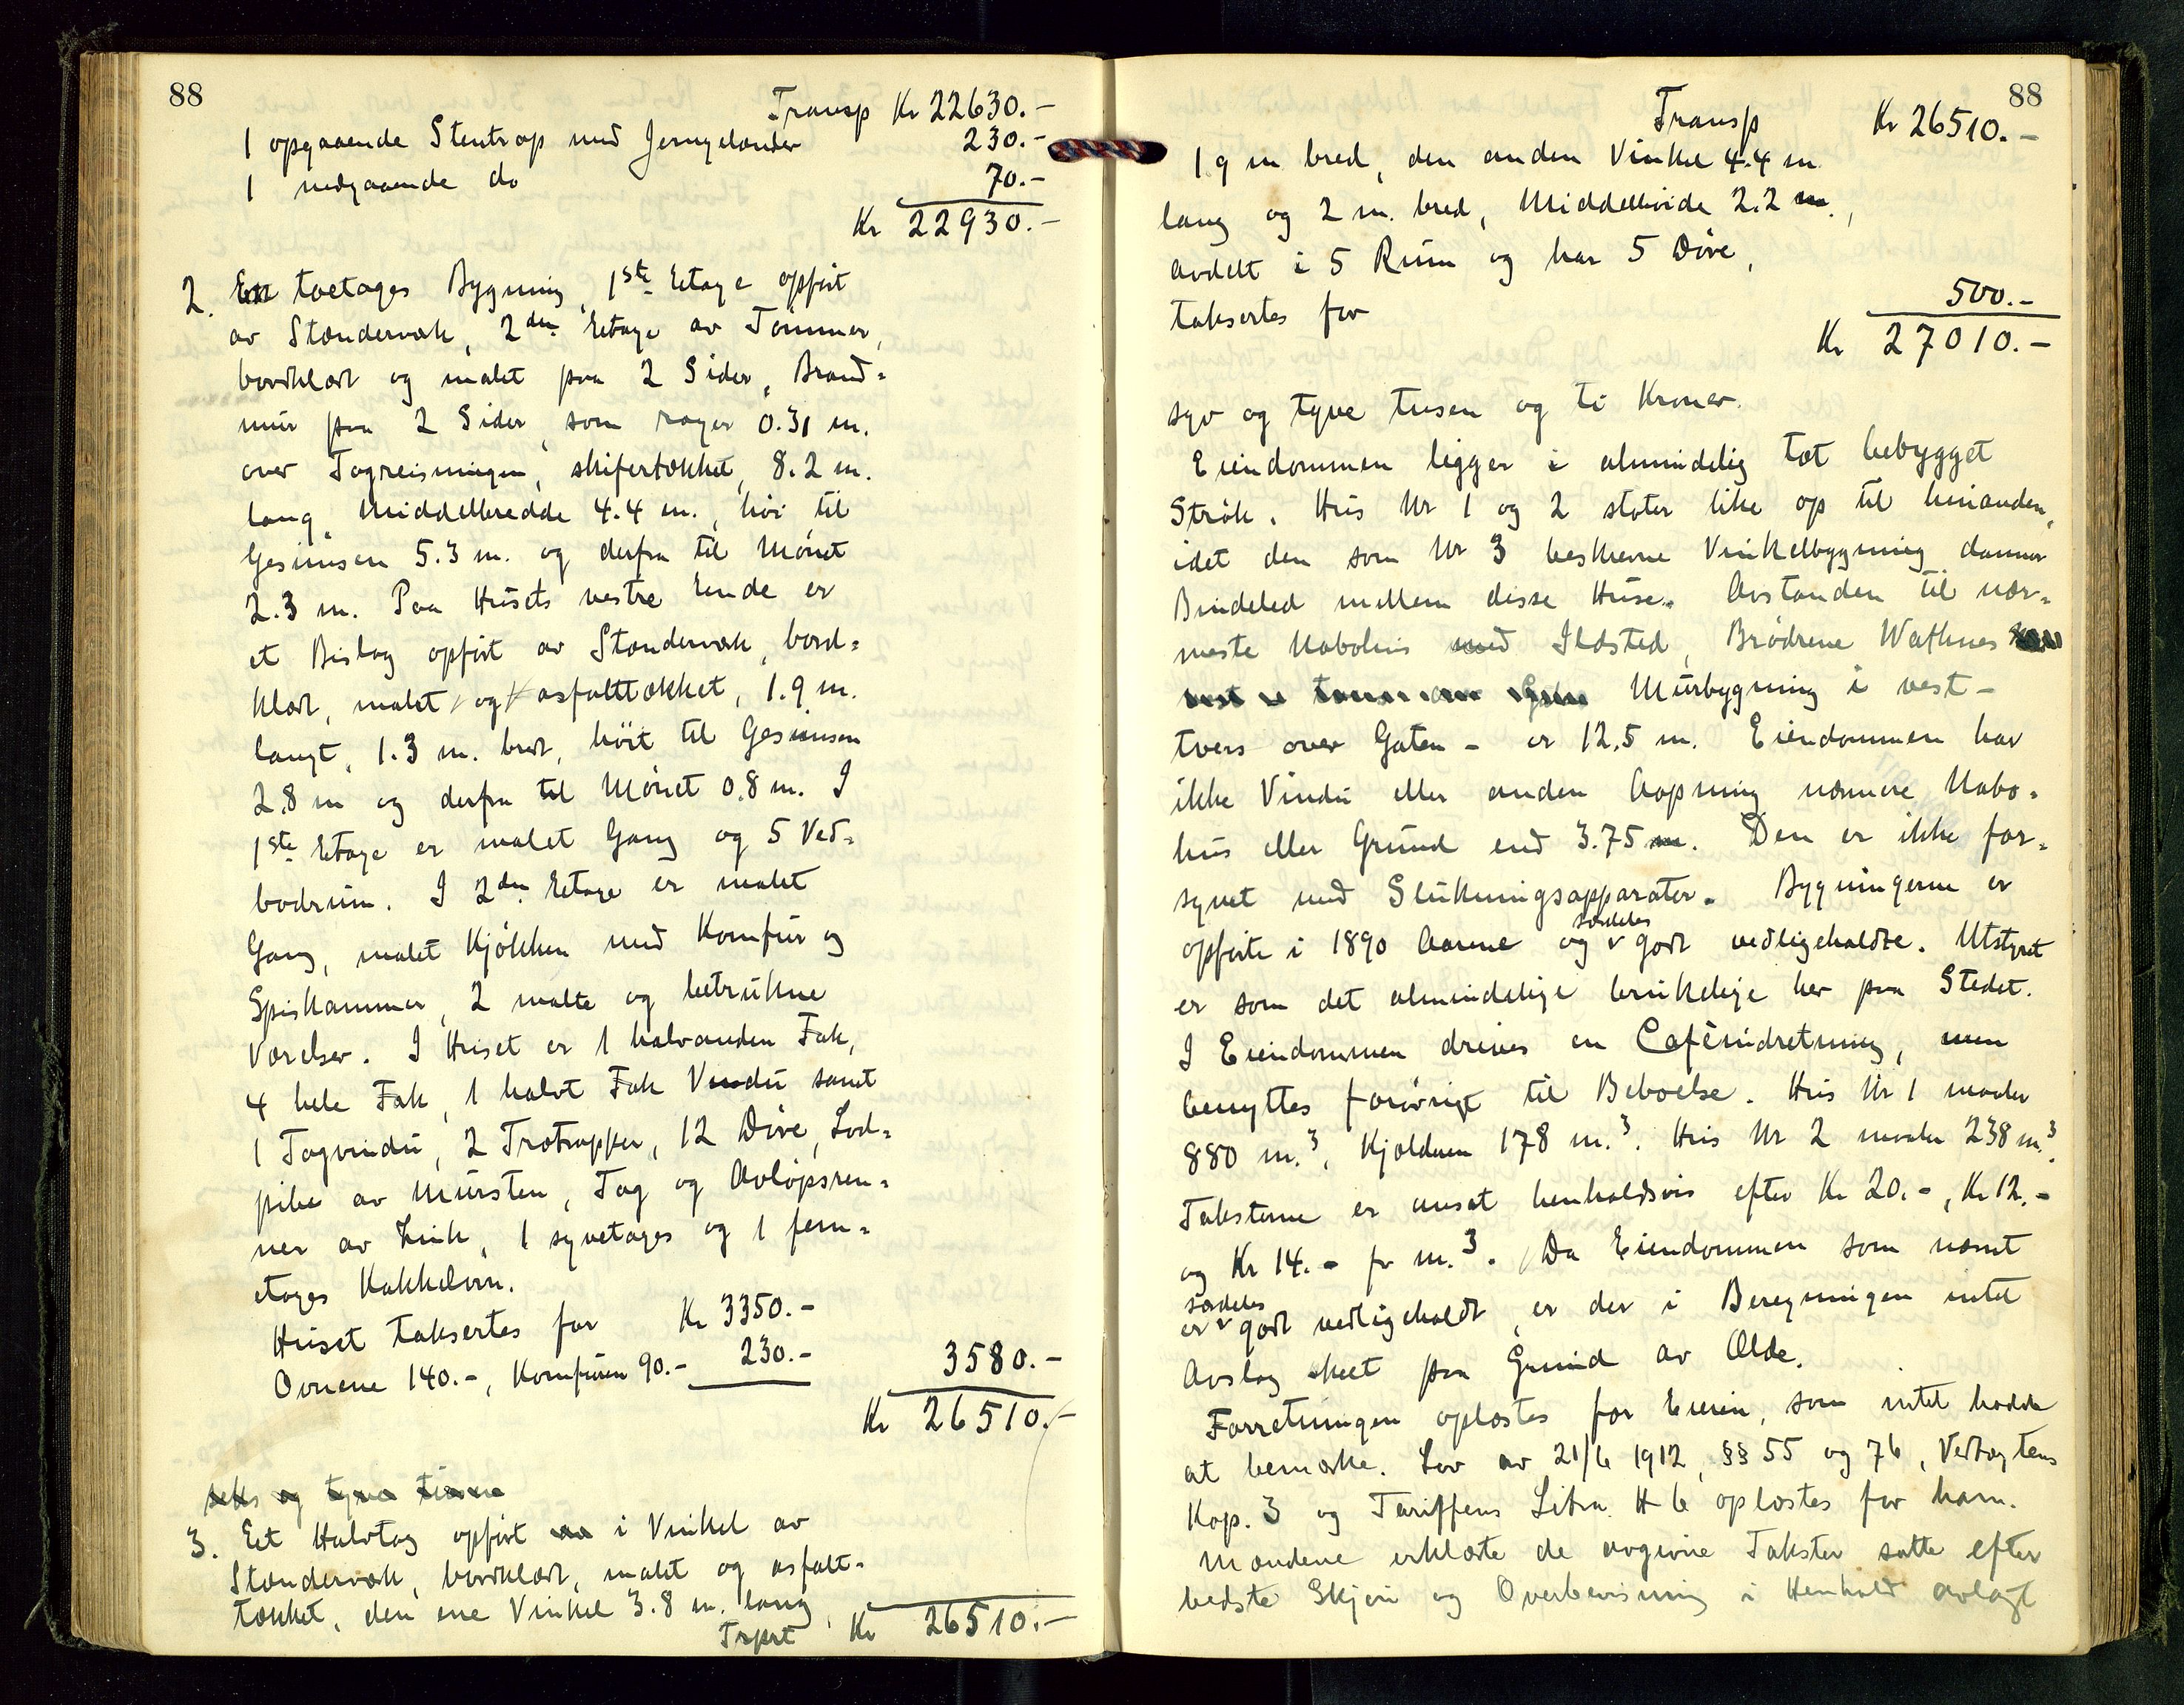 88
Transp Kr 22630.-
1 opgaaende Stentrap med Jerngelænder 230.-
1 nedgaaende do 70.-
Kr 22930.-
2. En toetages Bygning, 1ste Etage opført
av Stændervæk, 2den Etage av Tømmer,
bordklædt og malet paa 2 Sider, Brand-
mur paa 2 Sider, som rager 0.31 m.
over Tagreisningen, skifertækket, 8.2 m.
lang, Middelbredde 4.4 m., høi til
Gesimsen 5.3 m. og derfra til Mønet
2.3 m. Paa Husets vestre Ende er
et Bislag opført av Stændervæk, bord-
klædt, malet og asfalttækket, 1.9 m.
langt, 1.3 m. bredt, høit til Gesimsen
2.8 m og derfra til Mønet 0.8 m. I
1ste Etage er malet Gang og 5 Ved-
bodrum. I 2den Etage er malet
Gang, malet Kjøkken med Komfur og
Spiskammer, 2 malte og betrukne
Værelser. I Huset er 1 halvanden Fak,
4 hele Fak, 1 halvt Fak Vindu samt
1 Tagvindu, 2 Trætrapper, 12 Døre, Lod-
pibe av Mursten, Tag og Avløpsren-
ner av Zink, 1 syvetages og 1 fem-
etages Kakkelovn.
Huset takseres for Kr 3350.-
Ovnene 140.-, Komfuren 90.- 230.- 3580.-
Kr 26510.-
seks og tyve tusene
3. Et Halvtag opført i Vinkel av
Stændervæk, bordklædt, malet og asfalt-
tækket, den ene Vinkel 3.8 m. lang,
Trprt Kr 26510.-
88
Transp Kr 26510.-
1.9 m bred, den anden Vinkel 4.4 m
lang og 2 m. bred, Middelhøide 2.2 m.,
avdelt i 5 Rum og har 5 Døre,
taksertes for 500.-
Kr 27010.-
syv og tyve tusen og ti Kroner.
Eiendommen ligger i almindelig tæt bebygget
Strøk. Hus Nr 1 og 2 støter like op til hinanden,
idet den som Nr 3 beskrevne Vinkelbygning danner
Bindeled mellem disse Huse. Avstanden til nær-
meste Nabohus med Ildsted, Brødrene Wathnes
Murbygning i vest -
tvers over Gaten - er 12.5 m. Eiendommen har
ikke Vindu eller anden Aapning nærmere Nabo-
hus eller Grund end 3.75 m. Den er ikke for-
synet med Slukningsapparater. Bygningerne er
særdeles
opførte i 1890 Aarene og v godt vedligeholdte. Utstyret
er som det almindelige brukelige her paa Stedet.
I Eiendommen drives en Caféindretning, men
benyttes forøvrigt til Beboelse. Hus Nr 1 maaler
880 m.³, Kjælderen 178 m.³. Hus Nr 2 maaler 238 m.³.
Taksterne er ansat henholdsvis efter Kr 20.-, Kr 12.-
og Kr 14.- pr m.³. Da Eiendommen som nævnt
særdeles
er v godt vedligeholdt, er der i Beregningen intet
Avslag skeet paa Grund av Ælde.
Forretningen oplæstes for Eieren, som intet hadde
at bemærke. Lov av 21/6 1912, §§ 55 og 76, Vedtægtens
Kap. 3 og Tariffens Litra H 6 oplæstes for ham.
Mændene erklærte de avgivne Takster satte efter
bedste Skjøn og Overbevisning i Henhold avlagt